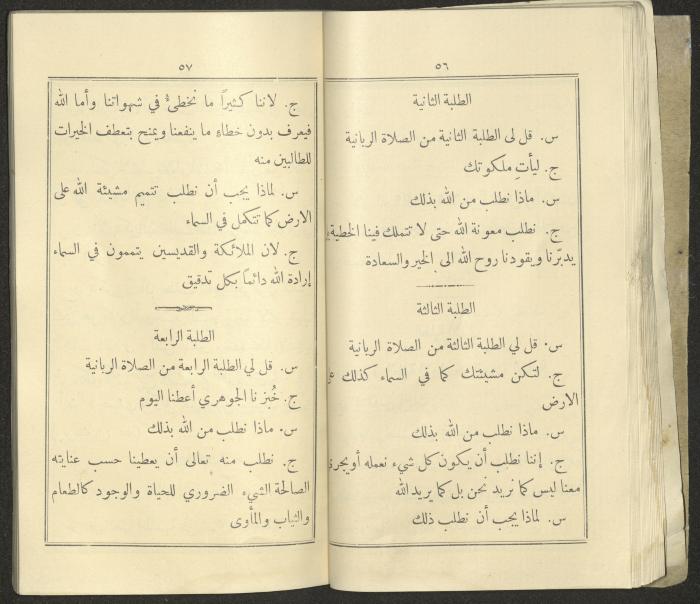 ٥٦
الطلبة الثانية
س. قل لى الطلبة الثانية من الصلاة الربانية
ج. ليأت ملكوتك
س. ماذا نطلب من الله بذلك
ج. نطلب معونة الله حتى لا تتملك فينا الخطية
يدبّرنا ويقودنا روح الله الى الخير والسعادة
الطلبة الثالثة
س. قل لي الطلبة الثالثة من الصلاة الربانية
ج. لتكن مشيئتك كما في السماء كذلك
الارض
س. ماذا نطلب من الله بذلك
ج. إننا نطلب أن يكون كل شيء نعمله أو يجرى
معنا ليس كما نريد نحن بل كما يريد الله
س. لماذا يجب أن نطلب ذلك
٥٧
ج. لاننا كثيراً ما نخطئ في شهواتنا وأما الله
فيعرف بدون خطاءِ ما ينفعنا ويمنح بتعطف الخيرات
للطالبين منه
س. لماذا يجب أن نطلب تتميم مشيئة الله على
الارض كما تتكمل في السماء
ج. لان الملائكة والقديسين يتممون في السماء
إرادة الله دائماً بكل تدقيق
الطلبة الرابعة
س. قل لي الطلبة الرابعة من الصلاة الربانية
ج. خُبزنا الجوهري أعطنا اليوم
س. ماذا نطلب من الله بذلك
ج. نطلب منه تعالى أن يعطينا حسب عنايته
الصالحة الشيء الضروري للحياة والوجود كالطعام
والثياب والمأوى